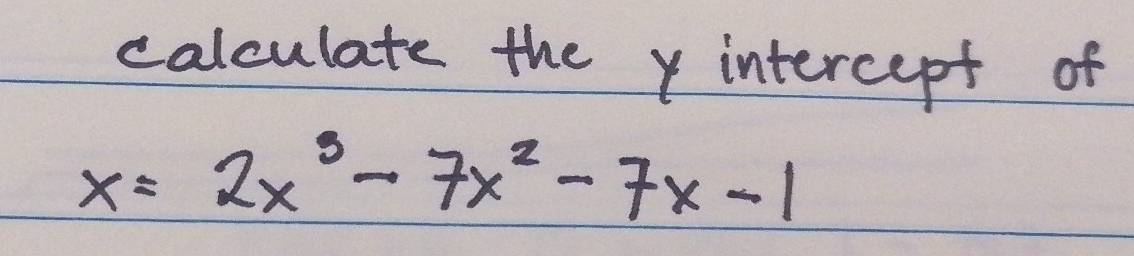 calculate the y intercept of
x= 2x³ - 7x² - 7x - 1